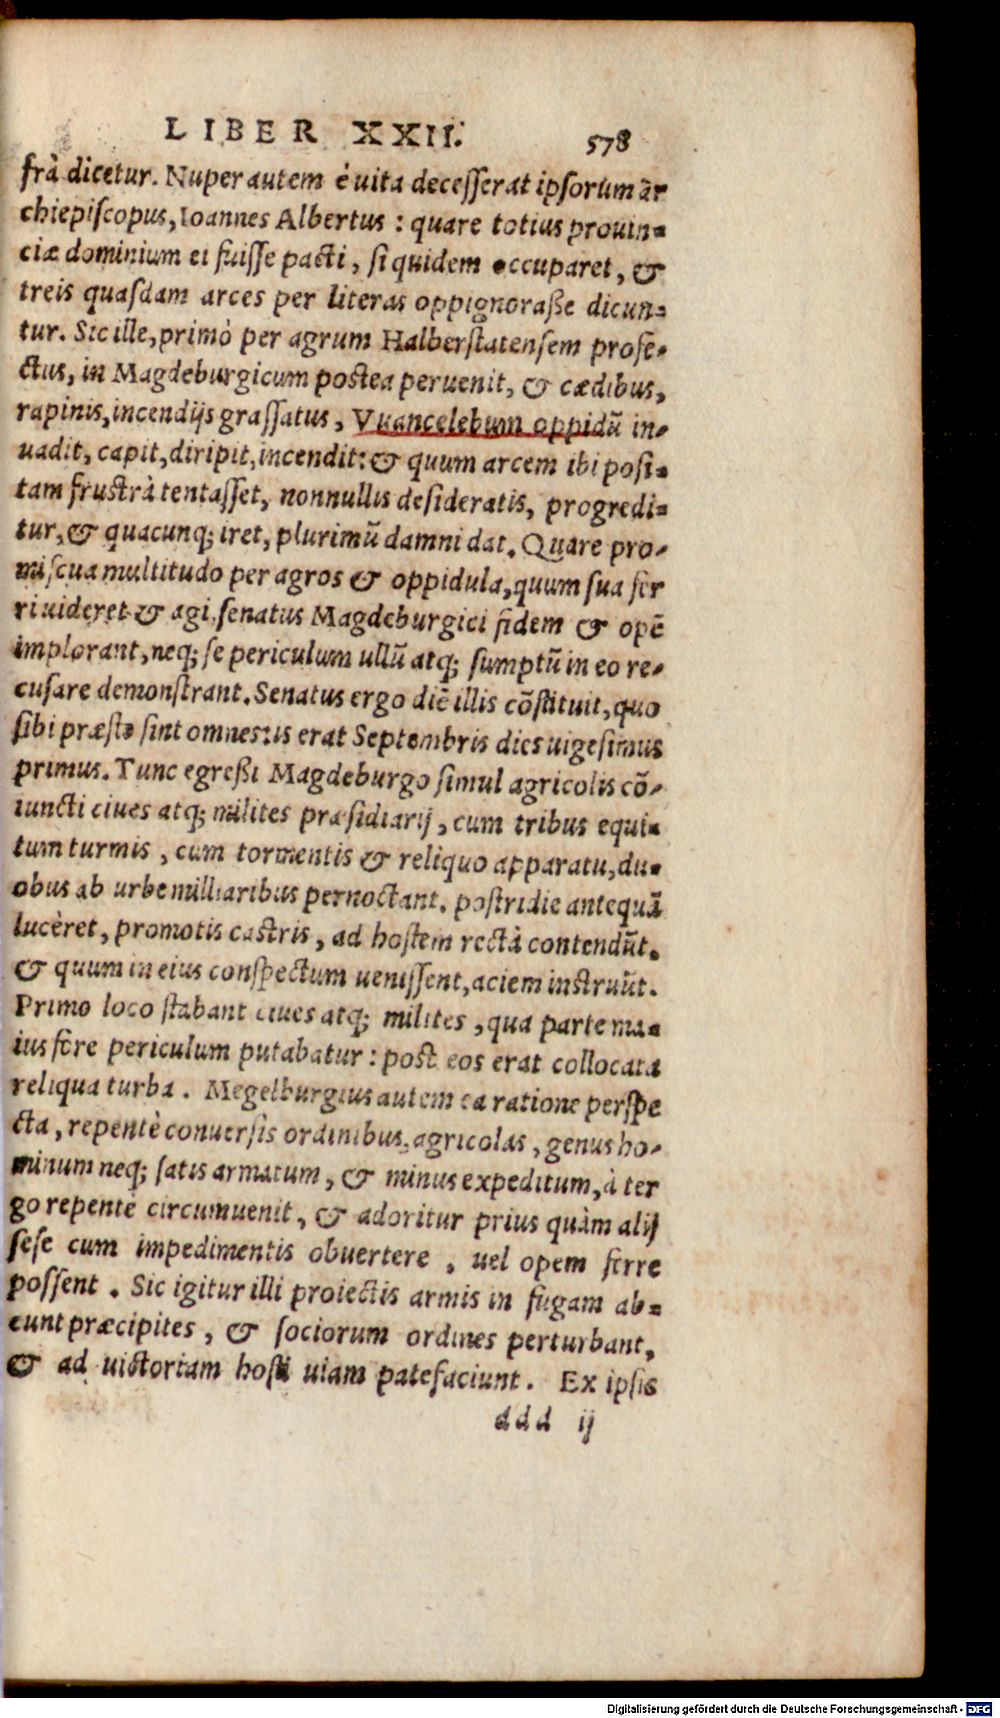 LIBER XXII. 578
frà dicetur. Nuper autem è uita decesserat ipsorum ar
chiepiscopus, Ioannes Albertus : quare totius prouin=
ciæ dominium ei fuisse pacti, siquidem occuparet, &
treis quasdam arces per literas oppignoraße dicun=
tur. Sic ille, primò per agrum Halberstatensem profe=
ctus, in Magdeburgicum postea peruenit, & cædibus,
rapinis, incendijs grassatus, Vuancelebum oppidũ in=
uadit, capit, diripit, incendit: & quum arcem ibi posi=
tam frustrà tentasset, nonnullis desideratis, progredi=
tur, & quacunq; iret, plurimũ damni dat. Quare pro=
miscua multitudo per agros & oppidula, quum sua fer
ri uideret & agi, senatus Magdeburgici fidem & opẽ
implorant, neq; se periculum ullũ atq; sumptũ in eo re=
cusare demonstrant. Senatus ergo diẽ illis cõstituit, quo
sibi præsto sint omnes: is erat Septembris dies uigesimus
primus. Tunc egreßi Magdeburgo simul agricolis cõ=
iuncti ciues atq; milites præsidiarij, cum tribus equi=
tum turmis, cum tormentis & reliquo apparatu, du=
obus ab urbe milliaribus pernoctant. postridie antequã
lucèret, promotis castris, ad hostem rectà contendũt.
& quum in eius conspectum uenissent, aciem instruũt.
Primo loco stabant ciues atq; milites, qua parte ma=
ius fere periculum putabatur : post eos erat collocata
reliqua turba. Megelburgius autem ea ratione perspe
cta, repentè conuersis ordinibus, agricolas, genus ho=
minum neq; satis armatum, & minus expeditum, à ter
go repentè circumuenit, & adoritur prius quàm alij
sese cum impedimentis obuertere, uel opem ferre
possent. Sic igitur illi proiectis armis in fugam ab=
eunt præcipites, & sociorum ordines perturbant,
& ad uictoriam hosti uiam patefaciunt. Ex ipsis
ddd ij
Digitalisierung gefördert durch die Deutsche Forschungsgemeinschaft - DFG